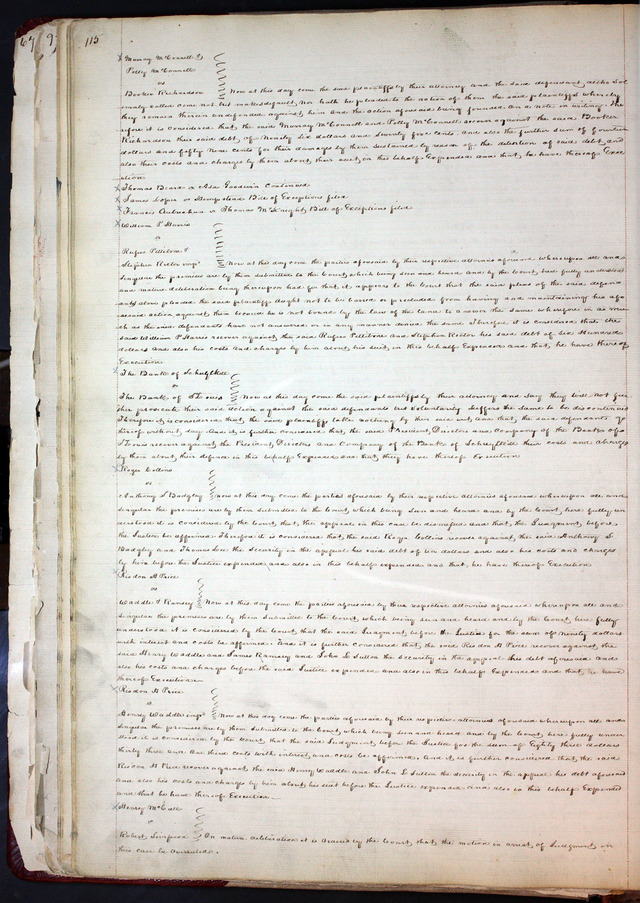 115
Murray McConnell &
Polly McConnell
vs
Booker Richardson Now at this day come the said plaintiffs by their attorney and the said defendant, altho sol
emnly called come not but makes default, Nor hath he pleaded to the action of them the said plaintiffs whereby
they remain therein undefended against him and the action aforesaid being founded on and note in writing. There
fore it is considered that the said Murray McConnell and Polly McConnell recover against the said Booker
Richardson their said debt of Ninety Six dollars and Seventy five cents. and also the further sum of fourteen
dollars and fifty Nine cents for their damages by them sustained by reason of the detention of said debt, and
also their costs and charges by them about their suit, in this behalf Expended and that, he have thereof Exe
cution
Thomas Beard vs Asa Goodwin Continued
James Soper vs Hempstead Bill of Exceptions filed
Francis Aubuchon vs Thomas McKnight, Bill of Exceptions filed
William P Harris
vs
Rufus Pettibone &
Stephen Rector imp Now at this day come the parties aforesaid by their respective attornies aforesaid whereupon all and
singular the premises are by them submitted to the Court, which being seen and heard and by the Court, here fully understood
and mature deliberation being thereupon had for that it appears to the Court that the said pleas of the said defend
ants above pleaded the said plaintiff ought not to be barred or precluded from having and maintaining his afo
resaid action against them because he is not bound by the law of the land to answer the same wherefore in as mu
ch as the said defendants have not answered or in any manner denied the same Therefore it is considered that the
said William P Harris recover against the said Rufus Pettibone and Stephen Rector his said debt of six Hundred
dollars and also his costs and charges by him about, his suit, in this behalf Expended and that, he have thereof
Execution
The Bank of Schuylkill
vs
The Bank of St Louis Now at this day come the said plaintiffs by their attorney and say they will Not fur
ther prosecute their said action against the said defendants but voluntarily suffers the same to be discontinued
Therefore it is considered that the said plaintiffs take nothing by their suit and that, the said defendants go
thereof without day And it, is further considered that, the said President, Directors and Company of the Bank of S
t Louis recover against the President, Directors and Company of the Bank of Schuylkill their costs and charges
by them about their defence in this behalf Expended and that, they have thereof Execution
Roger Collins
vs
Anthony S Badgley Now at this day come the parties aforesaid by their respective attornies aforesaid whereupon all and
singular the premises are by them submitted to the Court, which being seen and heard and by the Court, here fully un
derstood it is considered by the Court, that the appeal in this case be dismissed and that the Judgment, before
the Justice be affirmed Therefore it is considered that, the said Roger Collins recover against, the said Anthony S
Badgley and Thomas the security in the appeal his said debt of ten dollars and also his costs and charges
by him before the Justice expended and also in this behalf expended and that, he have thereof Execution
Risdon H Price
vs
Waddle & Ramsey Now at this day come the parties aforesaid by their respective attornies aforesaid whereupon all and
singular the premises are by them submitted to the Court, which being seen and heard and by the Court, here fully
understood it is considered by the Court that the said Judgment before the Justice for the sum of Ninety dollars
with interest and costs be affirmed And it is further considered that, the said Risdon H Price recover against, the
said Henry Waddle and James Ramsey and John L Sutton the security in the appeal this debt aforesaid and
also his costs and charges before the said Justice expended and also in this behalf Expended and that, he have
thereof Execution
Risdon H Price
vs
Henry Waddle imp Now at this day come the parties aforesaid by their respective attornies aforesaid whereupon all and
singular the premises are by them submitted to the Court, which being seen and heard and by the Court, here fully under
stood it is considered by the Court, that the said Judgment before the Justice for the sum of Eighty three dollars
thirty three and one third cents with interest and costs be affirmed. And it is further considered that, the said
Risdon H Price recover against the said Henry Waddle and John L Sutton the security in the appeal his debt aforesaid
and also his costs and charges by him about, his suit before the Justice expended and also in this behalf Expended
and that he have thereof Execution
Henry McCall
vs
Robert Simpson On mature deliberation it is ordered by the Court, that, the motion in arrest of Judgment in
this case be overruled.